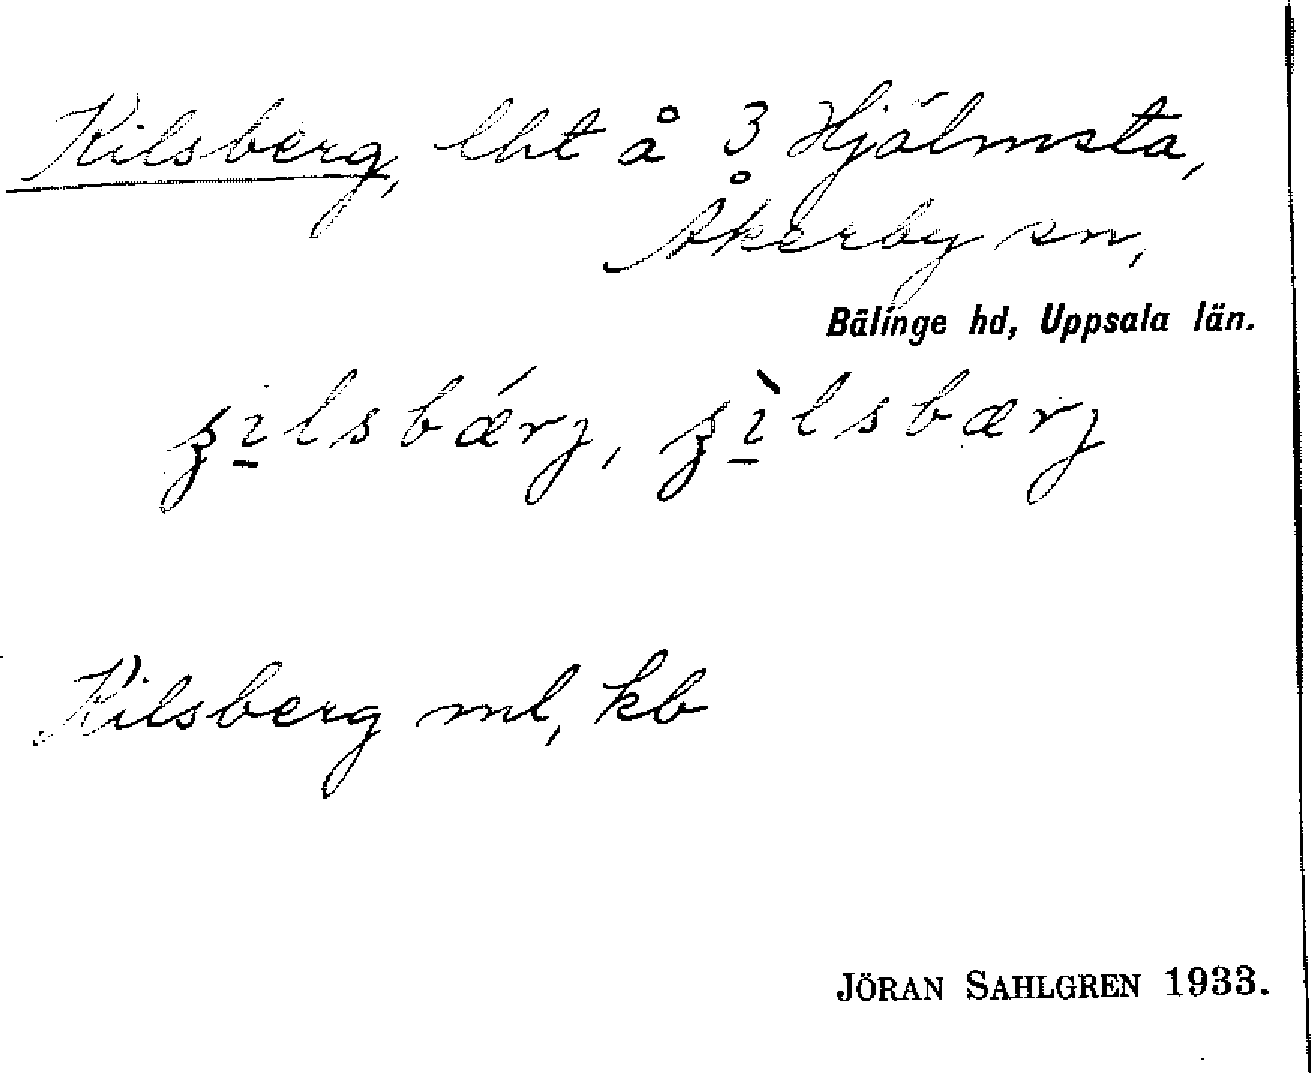 Kilsberg, lht å 3 Hjälmsta,
Åkerby sn,
Bälinge hd, Uppsala län.
ʒı̠lsbǽrj, ʒı̠̀lsbærj
Kilsberg ml, kb
JÖRAN SAHLGREN 1933.